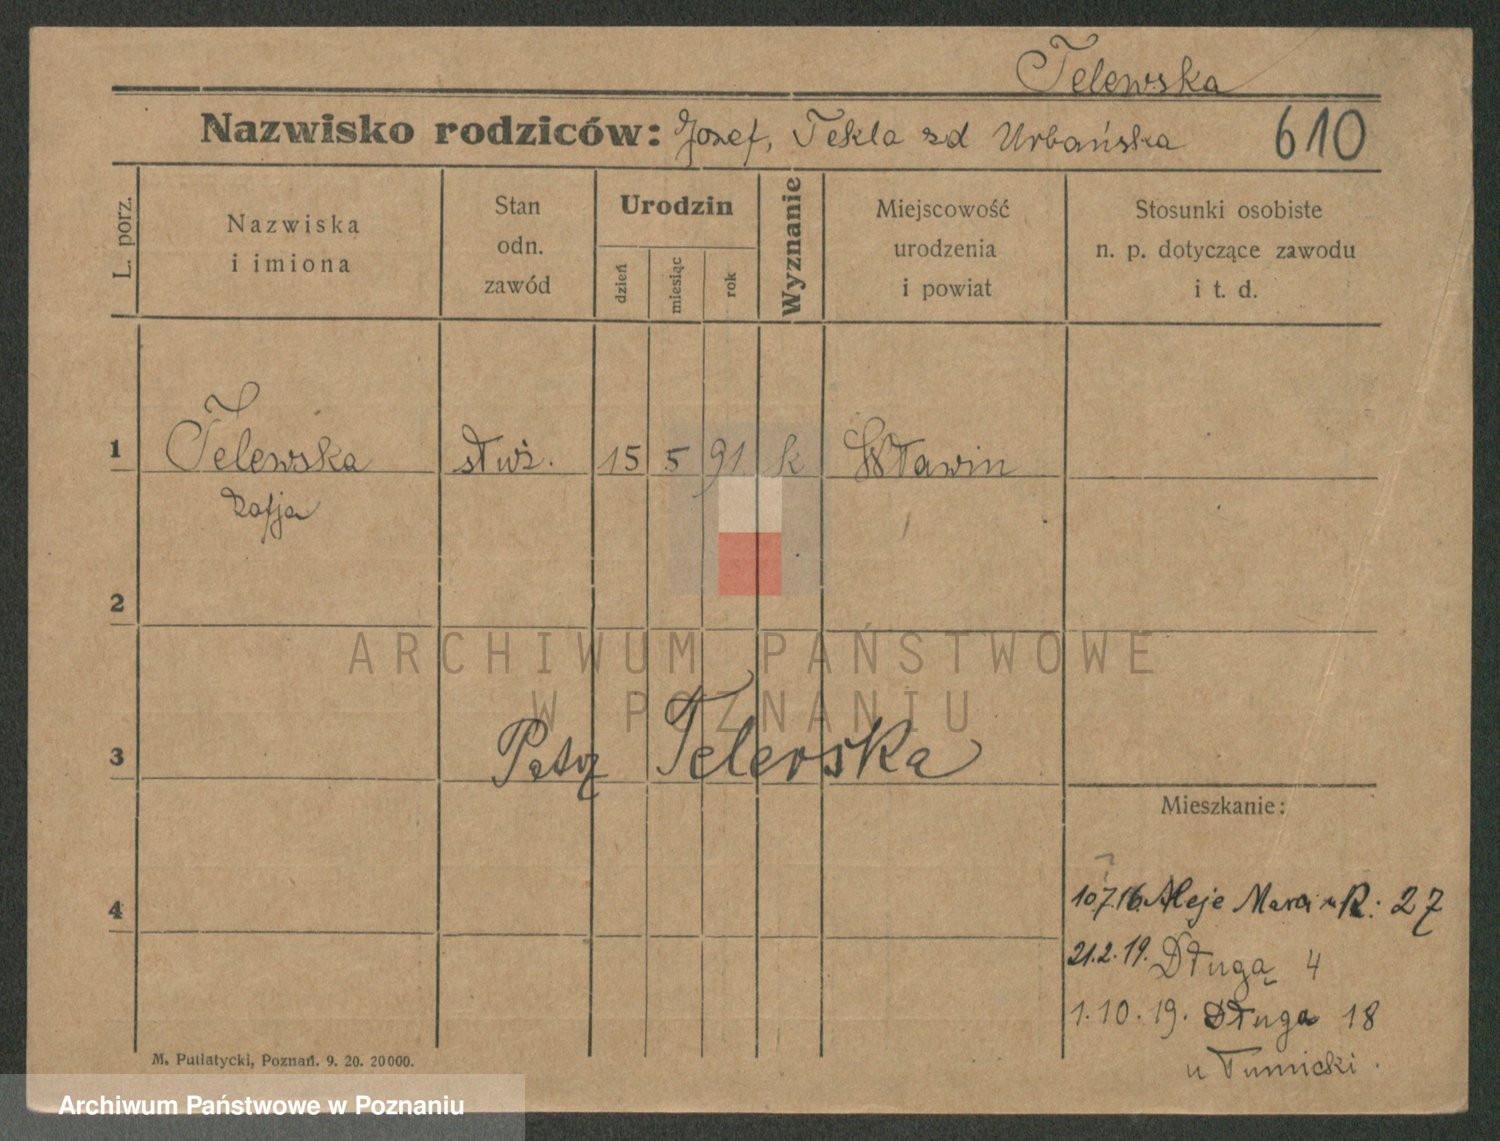 Telewska
Nazwisko rodziców: Jozef, Tekla zd Urbańska 610
L. porz.
Nazwiska
i imiona
Stan
odn.
zawód
Urodzin
dzień
miesiąc
rok
Wyznanie
Miejscowość
urodzenia
i powiat
Stosunki osobiste
n. p. dotyczące zawodu
i t. d.
1 Telewska służ. 15 5 91 k Wławin
Zofja
2
ARCHIWUM PAŃSTWOWE
W POZNANIU
3 Patrz Telerska
Mieszkanie:
4 10.7.16. Aleje Marcink: 27
21.2.19. Długa 4
1.10.19. Długa 18
u Tumicki.
M. Putiatycki, Poznań. 9. 20. 20000.
Archiwum Państwowe w Poznaniu